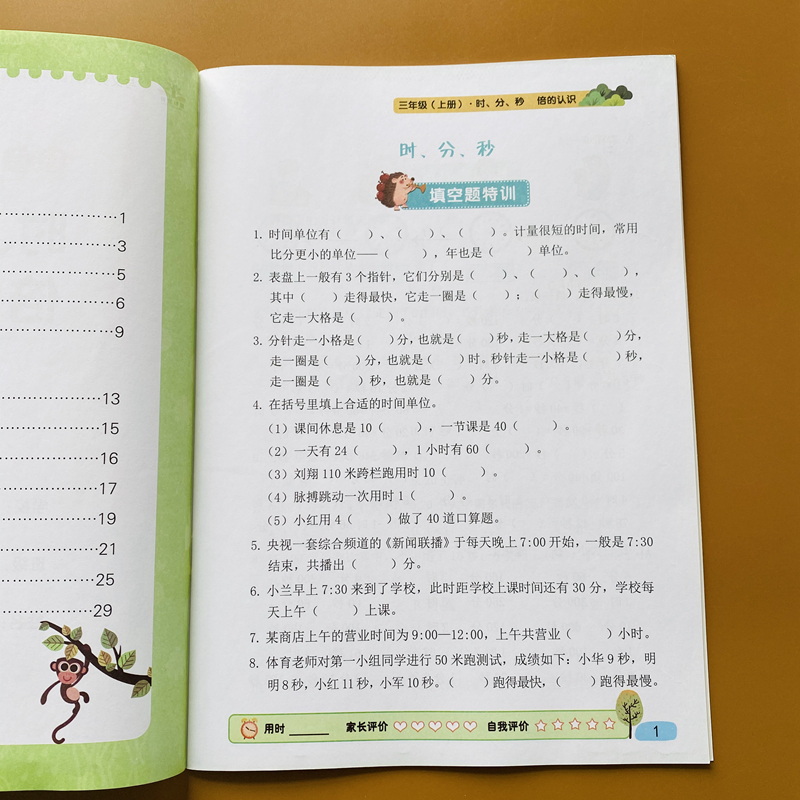 ……………………1
……………………3
……………………5
……………………6
……………………9
……………………13
……………………15
……………………16
……………………17
……………………19
……………………21
……………………25
……………………29
三年级（上册）·时、分、秒 倍的认识
时、分、秒
填空题特训
1. 时间单位有（ ）、（ ）、（ ）。计量很短的时间，常用
比分更小的单位——（ ），年也是（ ）单位。
2. 表盘上一般有3个指针，它们分别是（ ）、（ ）、（ ），
其中（ ）走得最快，它走一圈是（ ）；（ ）走得最慢，
它走一大格是（ ）。
3. 分针走一小格是（ ）分，也就是（ ）秒，走一大格是（ ）分，
走一圈是（ ）分，也就是（ ）时。秒针走一小格是（ ）秒，
走一圈是（ ）秒，也就是（ ）分。
4. 在括号里填上合适的时间单位。
（1）课间休息是10（ ），一节课是40（ ）。
（2）一天有24（ ），1小时有60（ ）。
（3）刘翔110米跨栏跑用时10（ ）。
（4）脉搏跳动一次用时1（ ）。
（5）小红用4（ ）做了40道口算题。
5. 央视一套综合频道的《新闻联播》于每天晚上7:00开始，一般是7:30
结束，共播出（ ）分。
6. 小兰早上7:30来到了学校，此时距学校上课时间还有30分，学校每
天上午（ ）上课。
7. 某商店上午的营业时间为9:00—12:00，上午共营业（ ）小时。
8. 体育老师对第一小组同学进行50米跑测试，成绩如下：小华9秒，明
明8秒，小红11秒，小军10秒。（ ）跑得最快，（ ）跑得最慢。
用时______ 家长评价 ♡♡♡♡♡ 自我评价 ☆☆☆☆☆
1